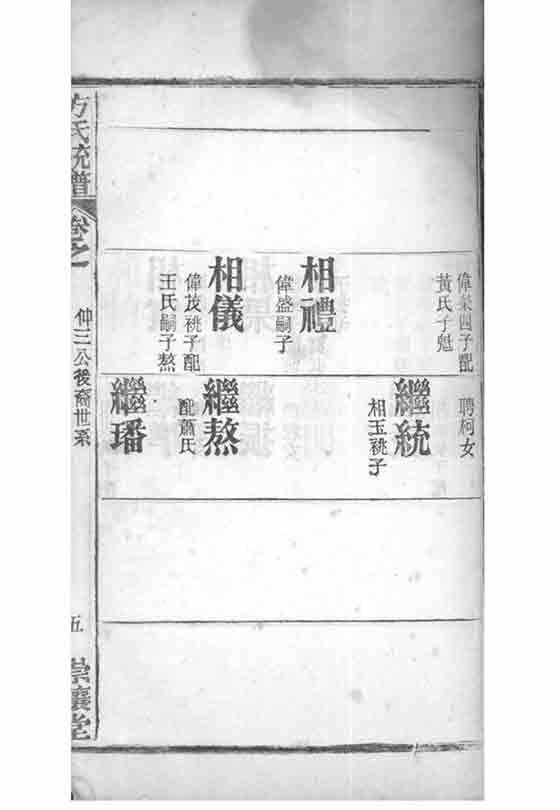 偉榮四子配
黃氏子魁
相禮
偉盛嗣子
相儀
偉茂祧子配
王氏嗣子熬
聘柯女
繼統
相玉祧子
繼熬
配蕭氏
繼璠
方氏統譜
卷之
仲三公後裔世系
五
崇讓堂